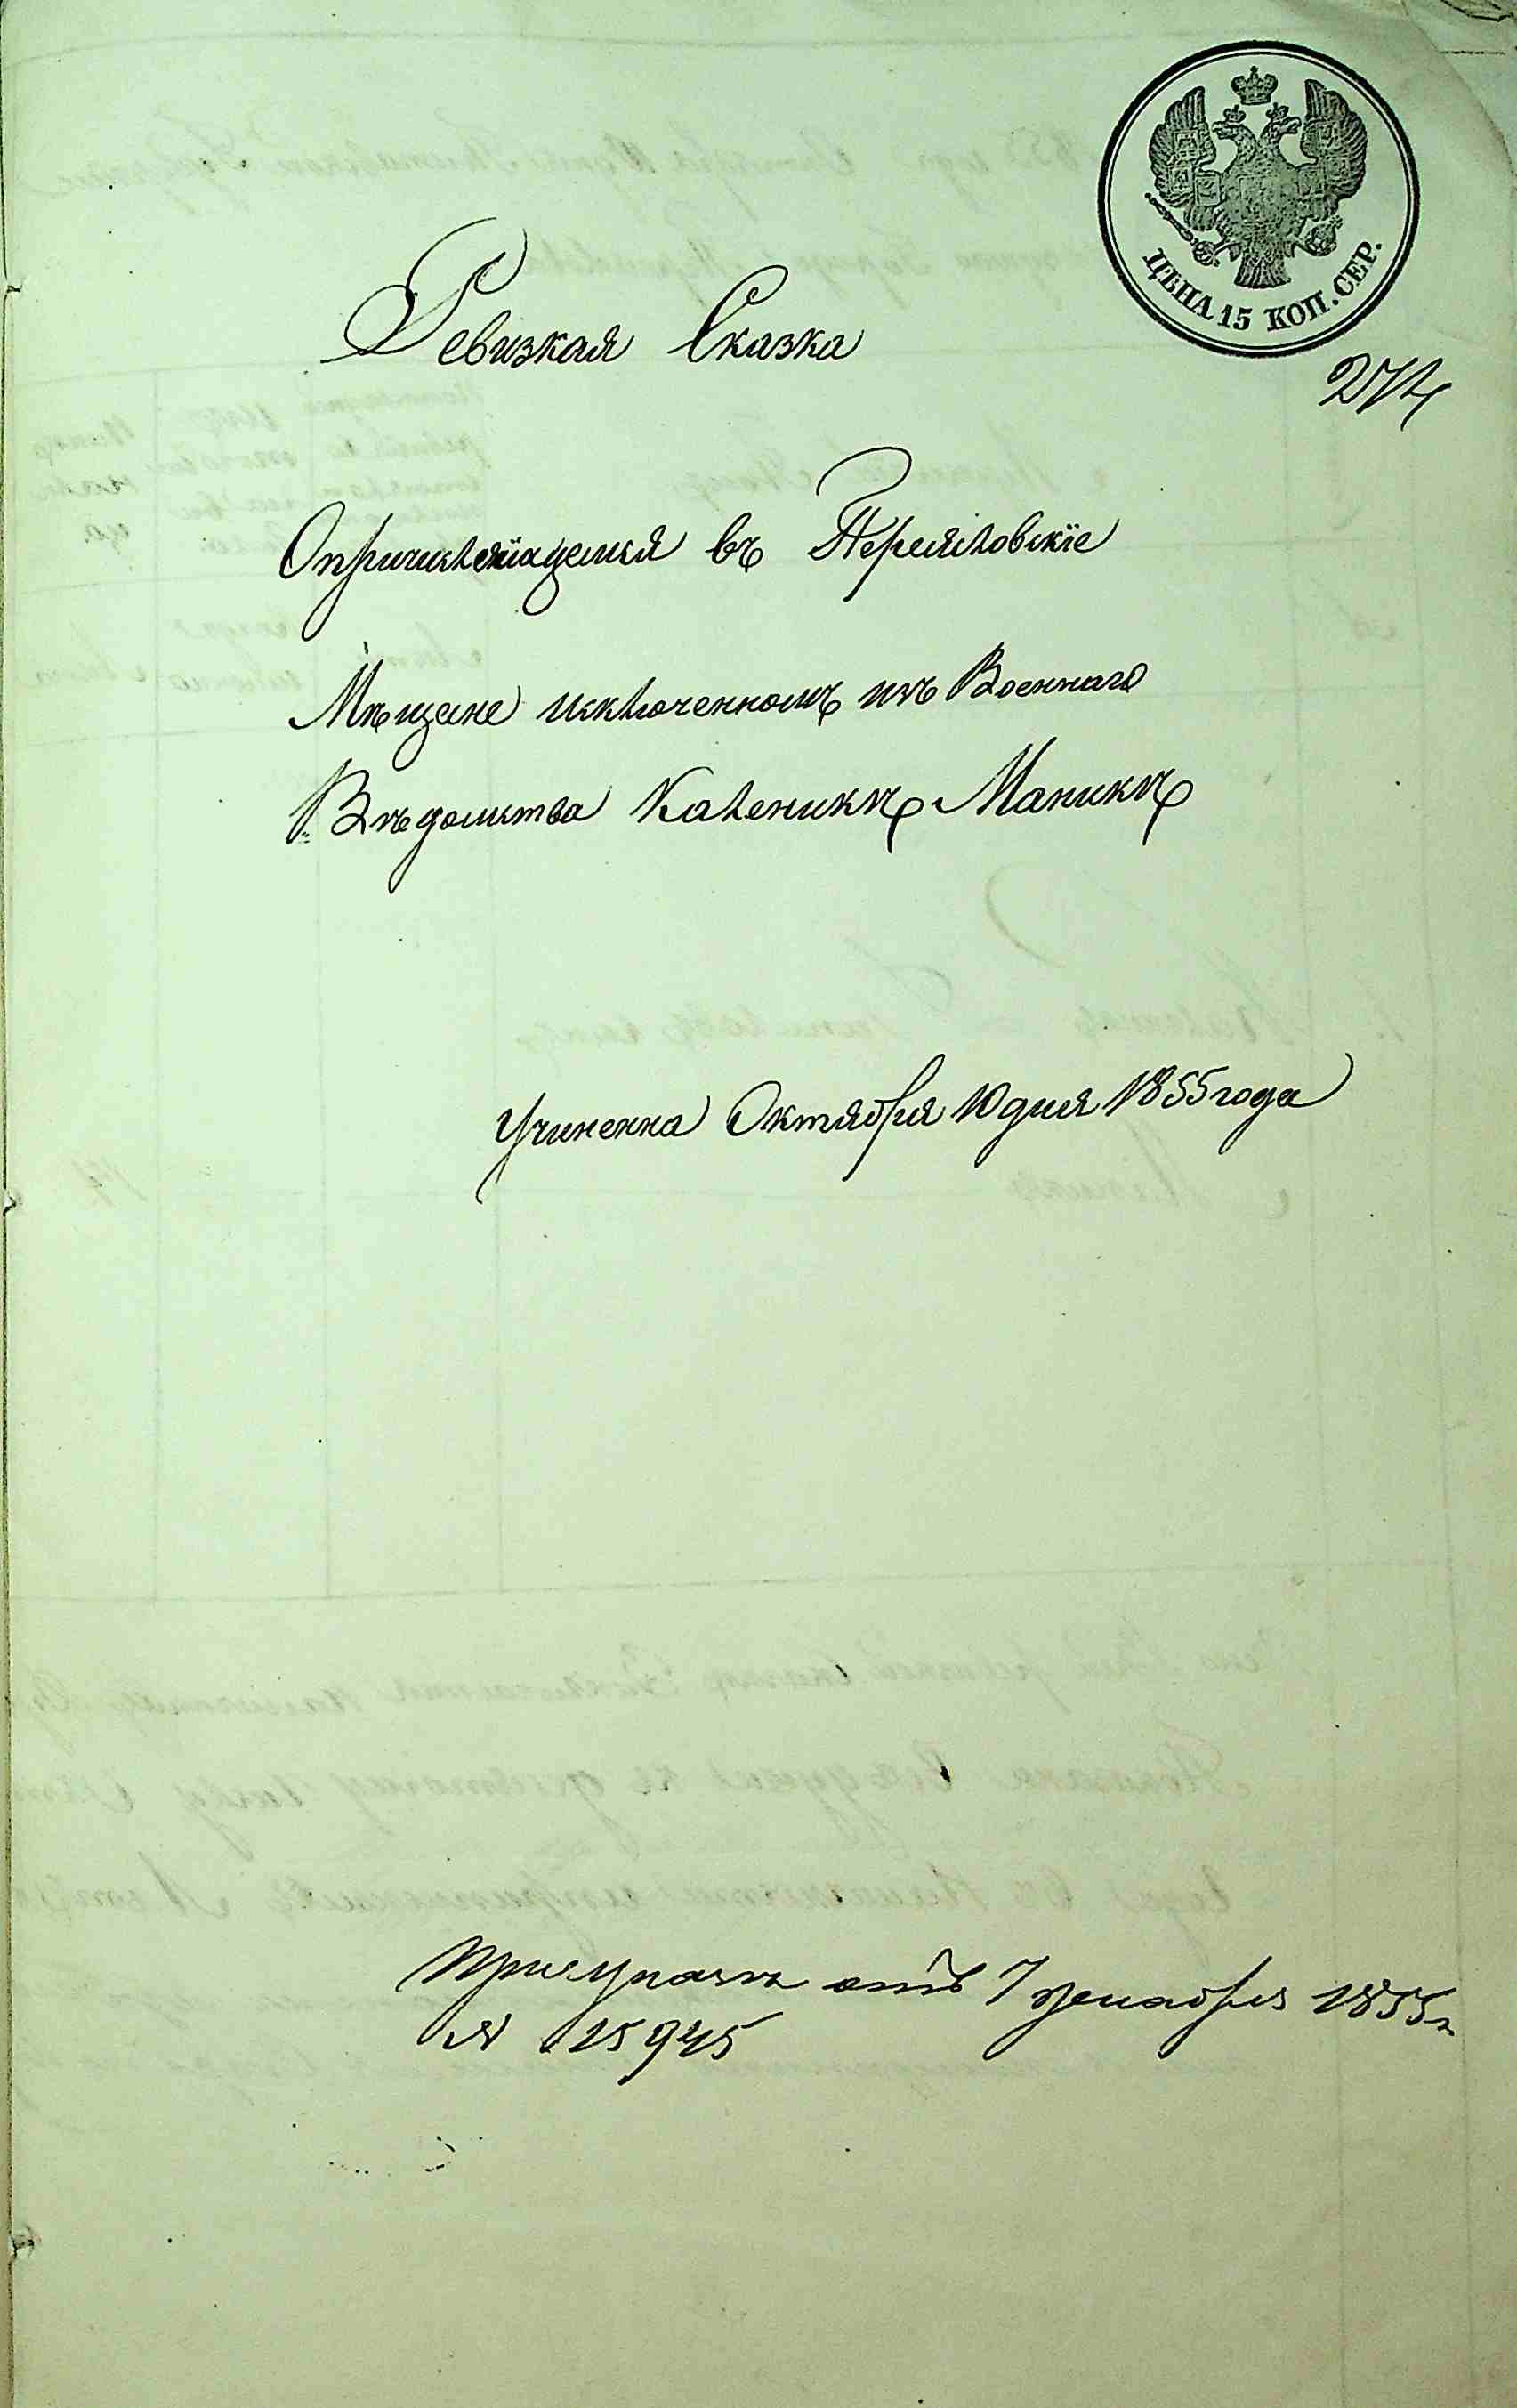 ЦѢНА 15 КОП. СЕР.
274
Ревизкая Сказка
Опричисляющемся въ Переясловскіе
Мѣщане исключенномъ изъ Военнаго
Вѣдомства Каленикѣ Маникѣ
Учиненна Октября 10 дня 1855 года
При указѣ отъ 7 декабря 1855 г.
№ 15945